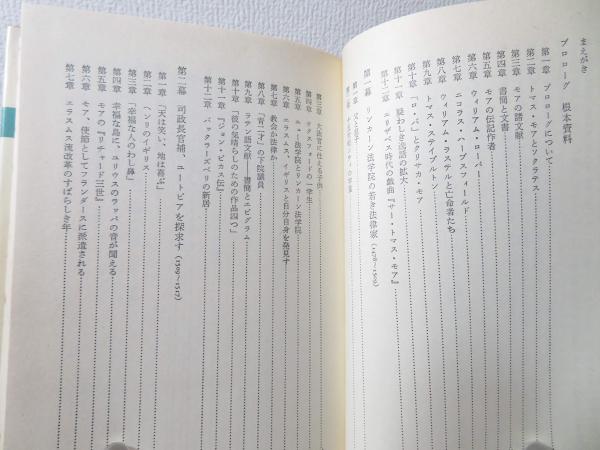 まえがき
プロローグ 根本資料
第一章 プロローグについて
第二章 トマス・モアとソクラテス
第三章 モアの諸文献
第四章 書簡と文書
第五章 モアの伝記作者
第六章 ウィリアム・ローパー
第七章 ニコラス・ハープスフィールド
第八章 ウィリアム・ラステルと亡命者たち
第九章 トマス・ステイプルトン
第十章 「ロ・バ」とクリサカ・モア
第十一章 疑わしき逸話の拡大
第十二章 エリザベス時代の戯曲『サー・トマス・モア』
第一幕 リンカーン法学院の若き法律家 (1478–1509)
第一章 父と息子
第二章
第三章 大法官に仕える子供
第四章 オックスフォードの一学生
第五章 ニュー法学院とリンカーン法学院
第六章 エラスムス、イギリスと自分自身を発見す
第七章 教会か法律か
第八章 「青二才」の下院議員
第九章 ラテン語文献——書簡とエピグラム
第十章 「彼の気晴らしのための作品四つ」
第十一章 『ジョン・ピカス伝』
第十二章 バックラーズベリの新居
第二幕 司政長官補、ユートピアを探求す (1509–1517)
第一章 「天は笑い、地は喜ぶ」
第二章 ヘンリのイギリス
第三章 「幸福な人のわし鼻」
第四章 幸福な島に、ユリウスのラッパの音が聞える
第五章 モアの『リチャード三世』
第六章 モア、使節としてフランダースに派遣される
第七章 エラスムス流改革のすばらしき年